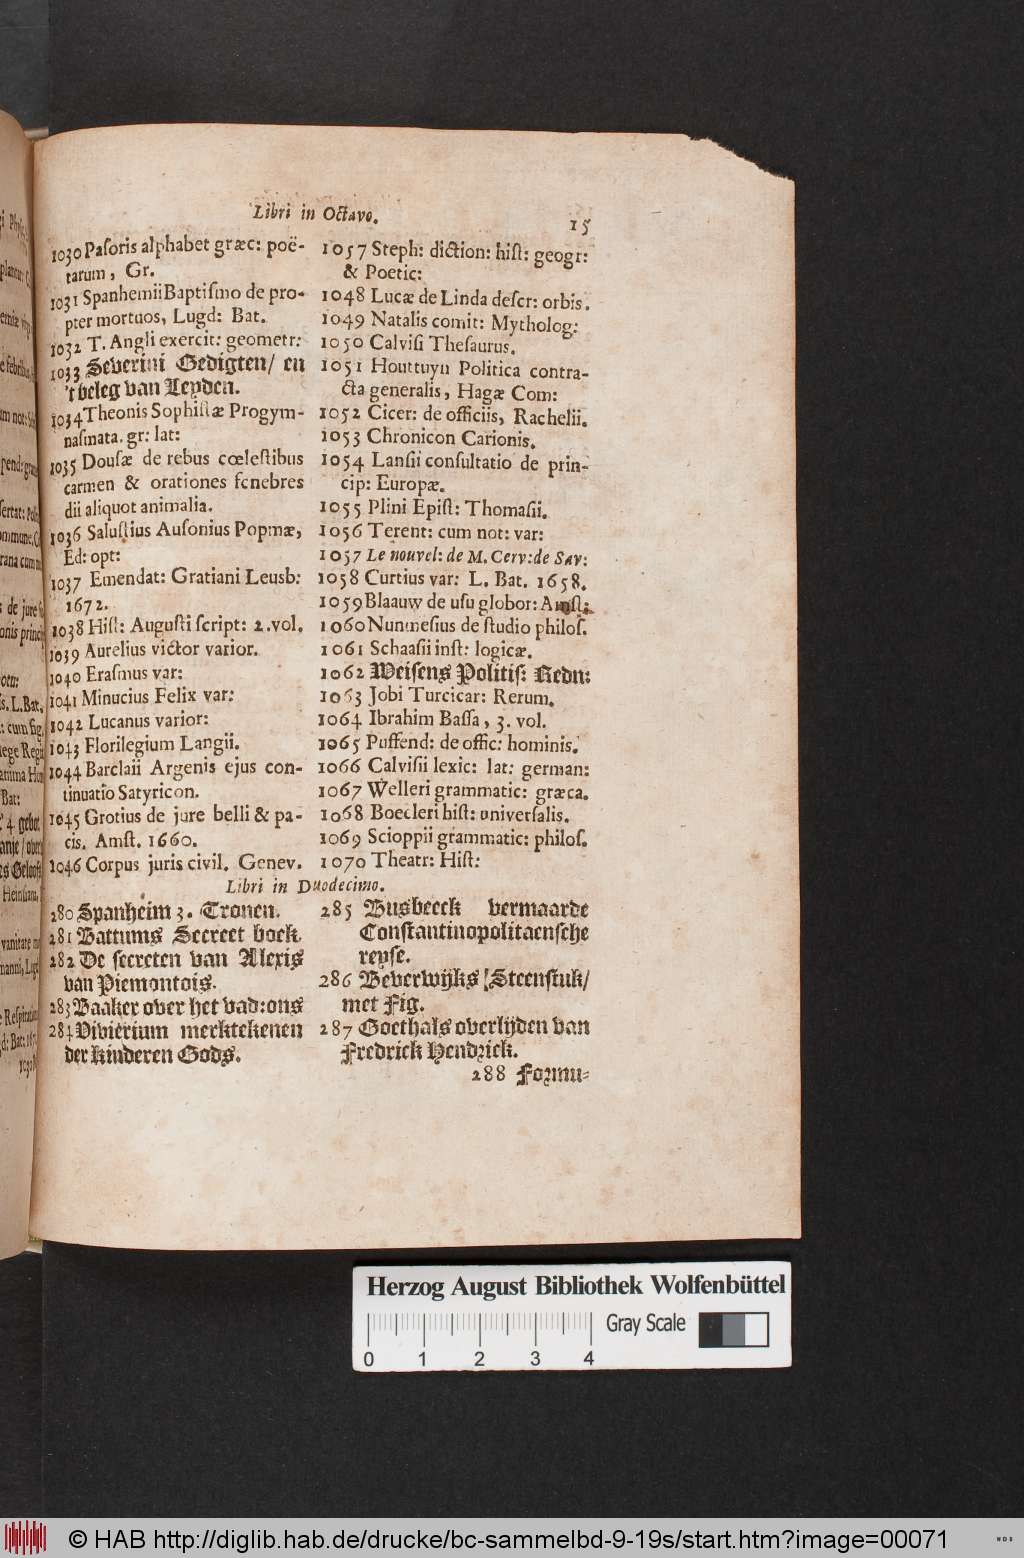 Libri in Octavo.
15
1030 Pasoris alphabet græc: poë-
tarum, Gr.
1031 Spanhemii Baptismo de pro-
pter mortuos, Lugd: Bat.
1032 T. Angli exercit: geometr:
1033 Severini Gedigten/ en
't beleg van Leyden.
1034 Theonis Sophistæ Progym-
nasmata. gr: lat:
1035 Dousæ de rebus cœlestibus
carmen & orationes fenebres
dii aliquot animalia.
1036 Salustius Ausonius Popmæ,
Ed: opt:
1037 Emendat: Gratiani Leusb:
1672.
1038 Hist: Augusti script: 2.vol.
1039 Aurelius victor varior.
1040 Erasmus var:
1041 Minucius Felix var:
1042 Lucanus varior:
1043 Florilegium Langii.
1044 Barclaii Argenis ejus con-
tinuatio Satyricon.
1045 Grotius de jure belli & pa-
cis. Amst. 1660.
1046 Corpus juris civil. Genev.
1057 Steph: diction: hist: geogr:
& Poetic:
1048 Lucæ de Linda descr: orbis.
1049 Natalis comit: Mytholog:
1050 Calvisi Thesaurus.
1051 Houttuyn Politica contra-
cta generalis, Hagæ Com:
1052 Cicer: de officiis, Rachelii.
1053 Chronicon Carionis.
1054 Lansii consultatio de prin-
cip: Europæ.
1055 Plini Epist: Thomasii.
1056 Terent: cum not: var:
1057 Le nouvel: de M. Cerv: de Sav:
1058 Curtius var: L. Bat. 1658.
1059 Blaauw de usu globor: Amst:
1060 Nunnesius de studio philos.
1061 Schaasii inst: logicæ.
1062 Weisens Politis: Redn:
1063 Jobi Turcicar: Rerum.
1064 Ibrahim Bassa, 3. vol.
1065 Puffend: de offic: hominis.
1066 Calvisii lexic: lat: german:
1067 Welleri grammatic: græca.
1068 Boecleri hist: universalis.
1069 Scioppii grammatic: philos.
1070 Theatr: Hist:
Libri in Duodecimo.
280 Spanheim 3. Tronen.
281 Battums Secreet boek.
282 De secreten van Alexis
van Piemontois.
283 Baaker over het vad:ons
284 Vivierium merktekenen
der kinderen Gods.
285 Busbeeck vermaarde
Constantinopolitaensche
reyse.
286 Beverwijks Steenstuk/
met Fig.
287 Goethals overlijden van
Fredrick Hendrick.
288 Formu-
Herzog August Bibliothek Wolfenbüttel
Gray Scale
0 1 2 3 4
© HAB http://diglib.hab.de/drucke/bc-sammelbd-9-19s/start.htm?image=00071